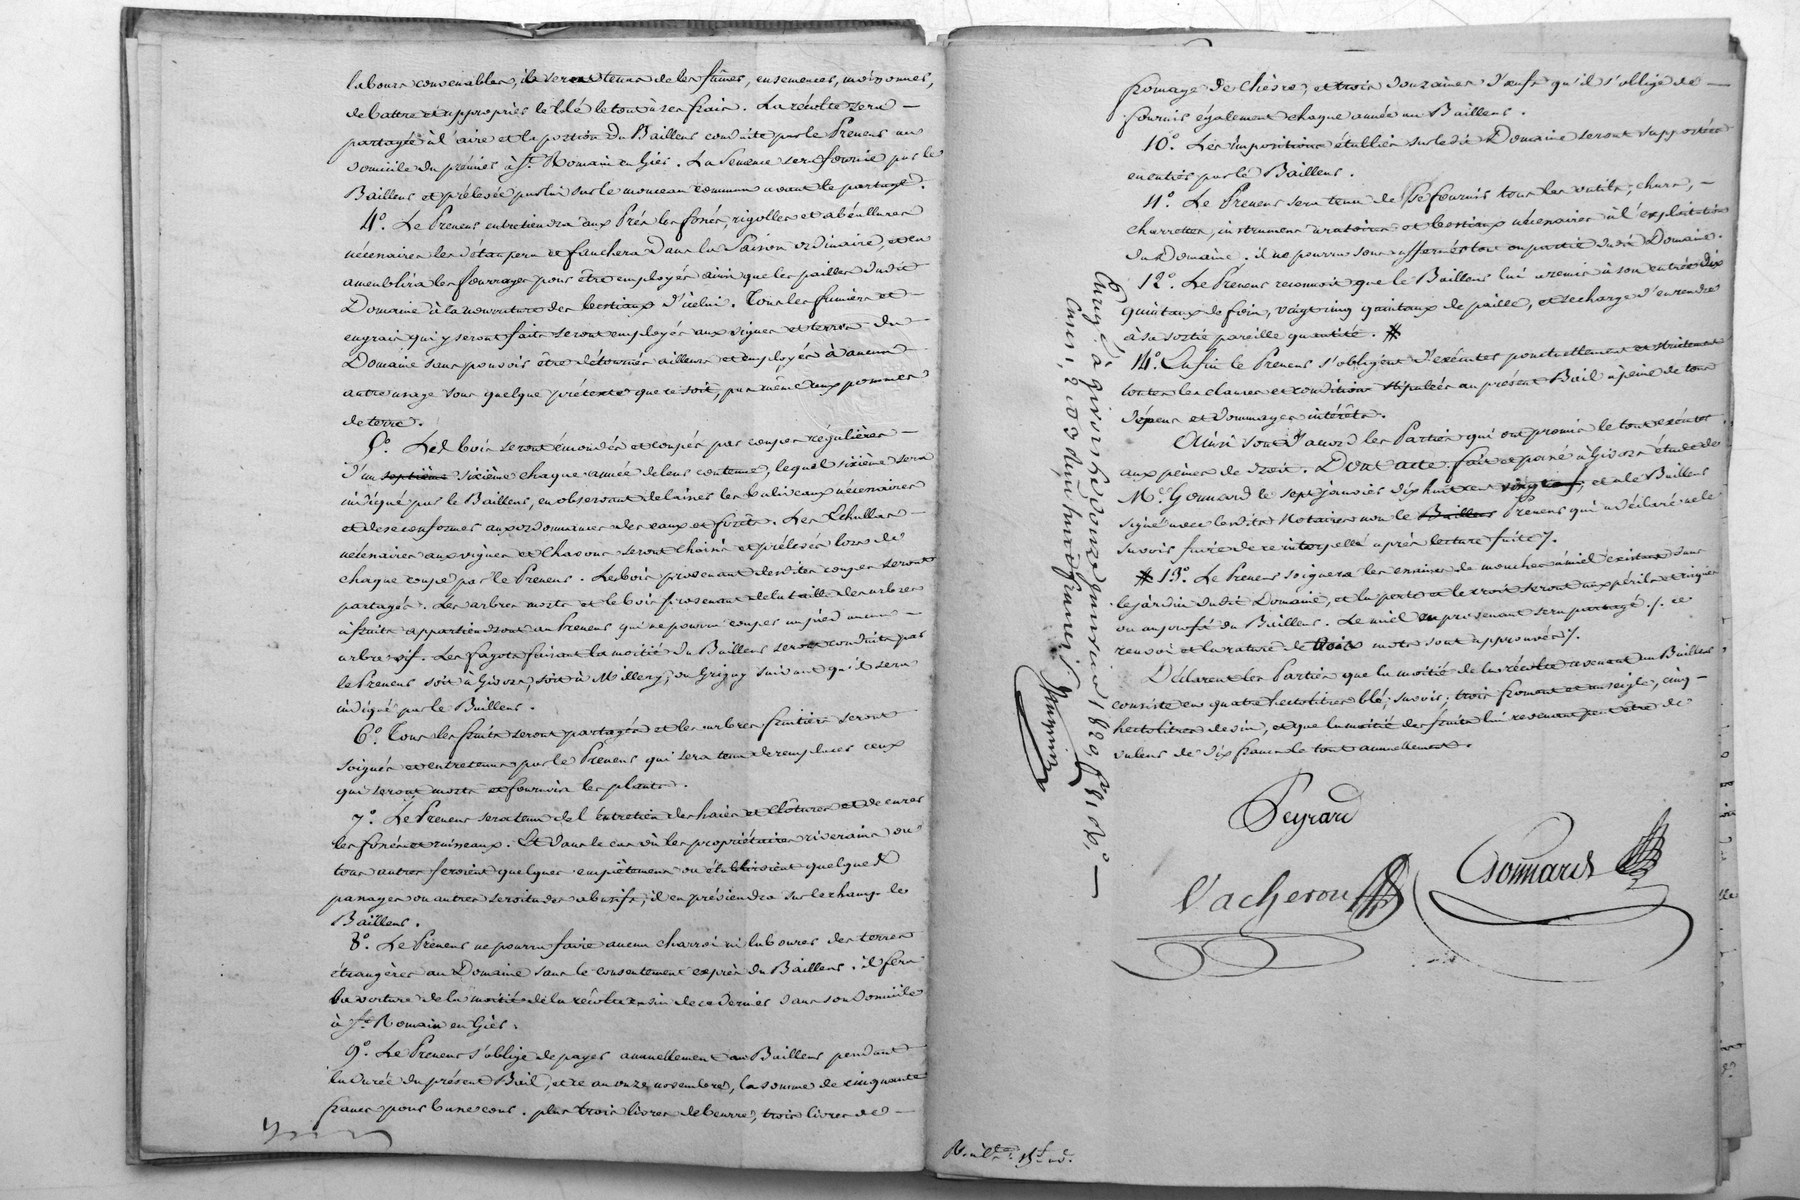 labours convenables, ils seront tenus de les fumer, ensemencer, moissonner,
de battre et approprier le blé le tout à ses frais. La récolte sera —
partagée à l'aire et la portion du Bailleur conduite par le Preneur au
domicile du premier à St. Romain en Giès. La Semence sera fournie par le
Bailleur et prélevée par lui sur le monceau commun avant le partage.
4.° Le Preneur entretiendra aux Prés les fossés, rigolles et abéullures
nécessaires les étaupera et fauchera dans la Saison ordinaire, et en
ameublira les fourrages pour être employés ainsi que les pailles dudit
Domaine à la nourriture des bestiaux d'icelui. Tous les fumiers et —
engrais qui y seront faits seront employés aux vignes et terres du
Domaine sans pouvoir être détournés ailleurs et employés à aucun
autre usage sous quelque prétexte que ce soit, pas même aux pommes
de terre.
5.° Les bois seront émondés et coupés par coupes régulières —
d'un septième sixième chaque année de leur contenue, lequel sixième sera
indiqué par le Bailleur, en observant de laisser les baliveaux nécessaires
et de se conformer aux ordonnances des eaux et forêts. Les Echallas —
nécessaires aux vignes et chasous seront choisis et prélevés lors de
chaque coupe par le Preneur. Les bois provenant desdites coupes seront
partagés. Les arbres morts et le bois provenant de la taille des arbres
à fruits appartiendront au Preneur qui ne pourra couper au pied aucun —
arbre vif. Les fagots faisant la moitié du Bailleur seront conduits par
le Preneur soit à Givors, soit à Millery, ou Grigny suivant qu'il sera
indiqué par le Bailleur.
6.° Tous les fruits seront partagés et les arbres fruitiers seront
soignés et entretenus par le Preneur qui sera tenu de remplacer ceux
qui seront morts et fournira les plants.
7.° Le Preneur sera tenu de l'entretien des haies et clôtures et de curer
les fossés et ruisseaux. Et dans le cas où les propriétaires riverains ou
tous autres feroient quelques empiètements ou établiroient quelques
passages ou autres servitudes abusifs, il en préviendra sur le champ le
Bailleur.
8.° Le Preneur ne pourra faire aucun charroi ni labourer des terres
étrangères au Domaine sans le consentement exprès du Bailleur. il fera
la voiture de la moitié de la récolte en vin de ce dernier dans son domicile
à St. Romain en Giès.
9.° Le Preneur s'oblige de payer annuellement au Bailleur pendant
la durée du présent Bail, et ce au onze novembre, la somme de cinquante
francs pour basse cour. plus trois livres de beurre, trois livres de —
fromage de chèvre, et trois douzaines d'œufs qu'il s'oblige de —
fournir également chaque année au Bailleur.
10.° Les impositions établies sur ledit Domaine seront supportées
en entier par le Bailleur.
11.° Le Preneur sera tenu de se fournir tous les outils, chars, —
charrettes, instruments aratoires et bestiaux nécessaires à l'exploitation
du Domaine. il ne pourra sous affermer tout ou partie dudit Domaine.
12.° Le Preneur reconnoit que le Bailleur lui a remis à son entrée dix
quintaux de foin, vingt cinq quintaux de paille, et se charge d'en rendre
à sa sortie pareille quantité. #
14.° Enfin le Preneur s'obligent d'exécuter ponctuellement et strictement
toutes les clauses et conditions stipulées au présent Bail à peine de tous
dépens et dommages intérêts.
Ainsi sont d'accord les Parties qui ont promis le tout exécuter
aux peines de droit. Dont acte fait et passé à Givors étude de
Me. Gonnard le sept janvier dix huit cent vingt neuf, et a le Bailleur
signé avec lesdits Notaires non le Bailleur Preneur qui a déclaré ne le
savoir faire de ce interpellé après lecture faite /.
# 13.° Le Preneur soignera les essaims de mouches à miel existans dans
le jardin dudit Domaine, et la perte et le croit seront aux périls et risques
ou au profit du Bailleur. Le miel en provenant sera partagé ./. ce
renvoi et la rature de trois mots sont approuvés /.
Déclarent les Parties que la moitié de la récolte revenant au Bailleur
consiste en quatre hectolitres blé; savoir; trois froment et un seigle, cinq —
hectolitres de vin, et que la moitié des fruits lui revenant peut être de
valeur de dix francs le tout annuellement.
Peyrard
Vacheron
Gonnard
Enreg.é à givors le douze janvier 1829 f.° 81 v.° —